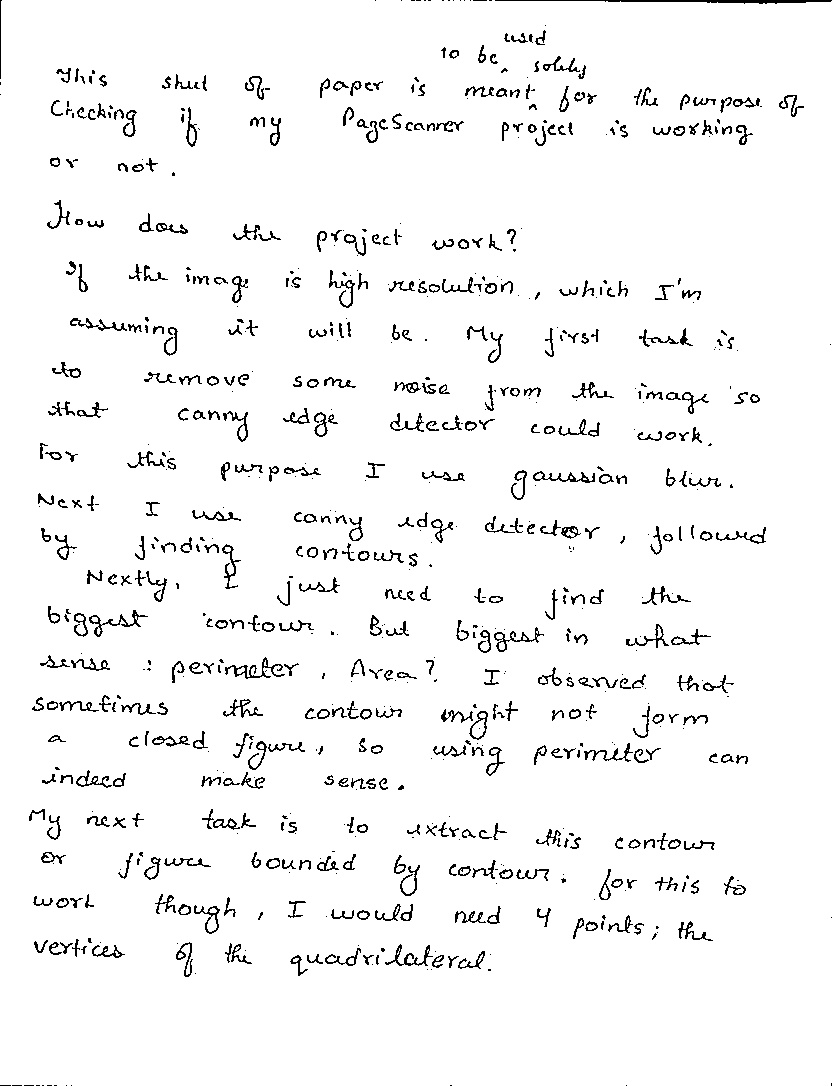 This sheet of paper is meant to be used solely for the purpose of
Checking if my PageScanner project is working
or not.
How does the project work?
If the image is high resolution, which I'm
assuming it will be. My first task is
to remove some noise from the image so
that canny edge detector could work.
For this purpose I use gaussian blur.
Next I use canny edge detector, followed
by finding contours.
Nextly, I just need to find the
biggest contour. But biggest in what
sense : perimeter, Area? I observed that
sometimes the contour might not form
a closed figure, so using perimeter can
indeed make sense.
My next task is to extract this contour
or figure bounded by contour. for this to
work though, I would need 4 points; the
vertices of the quadrilateral.